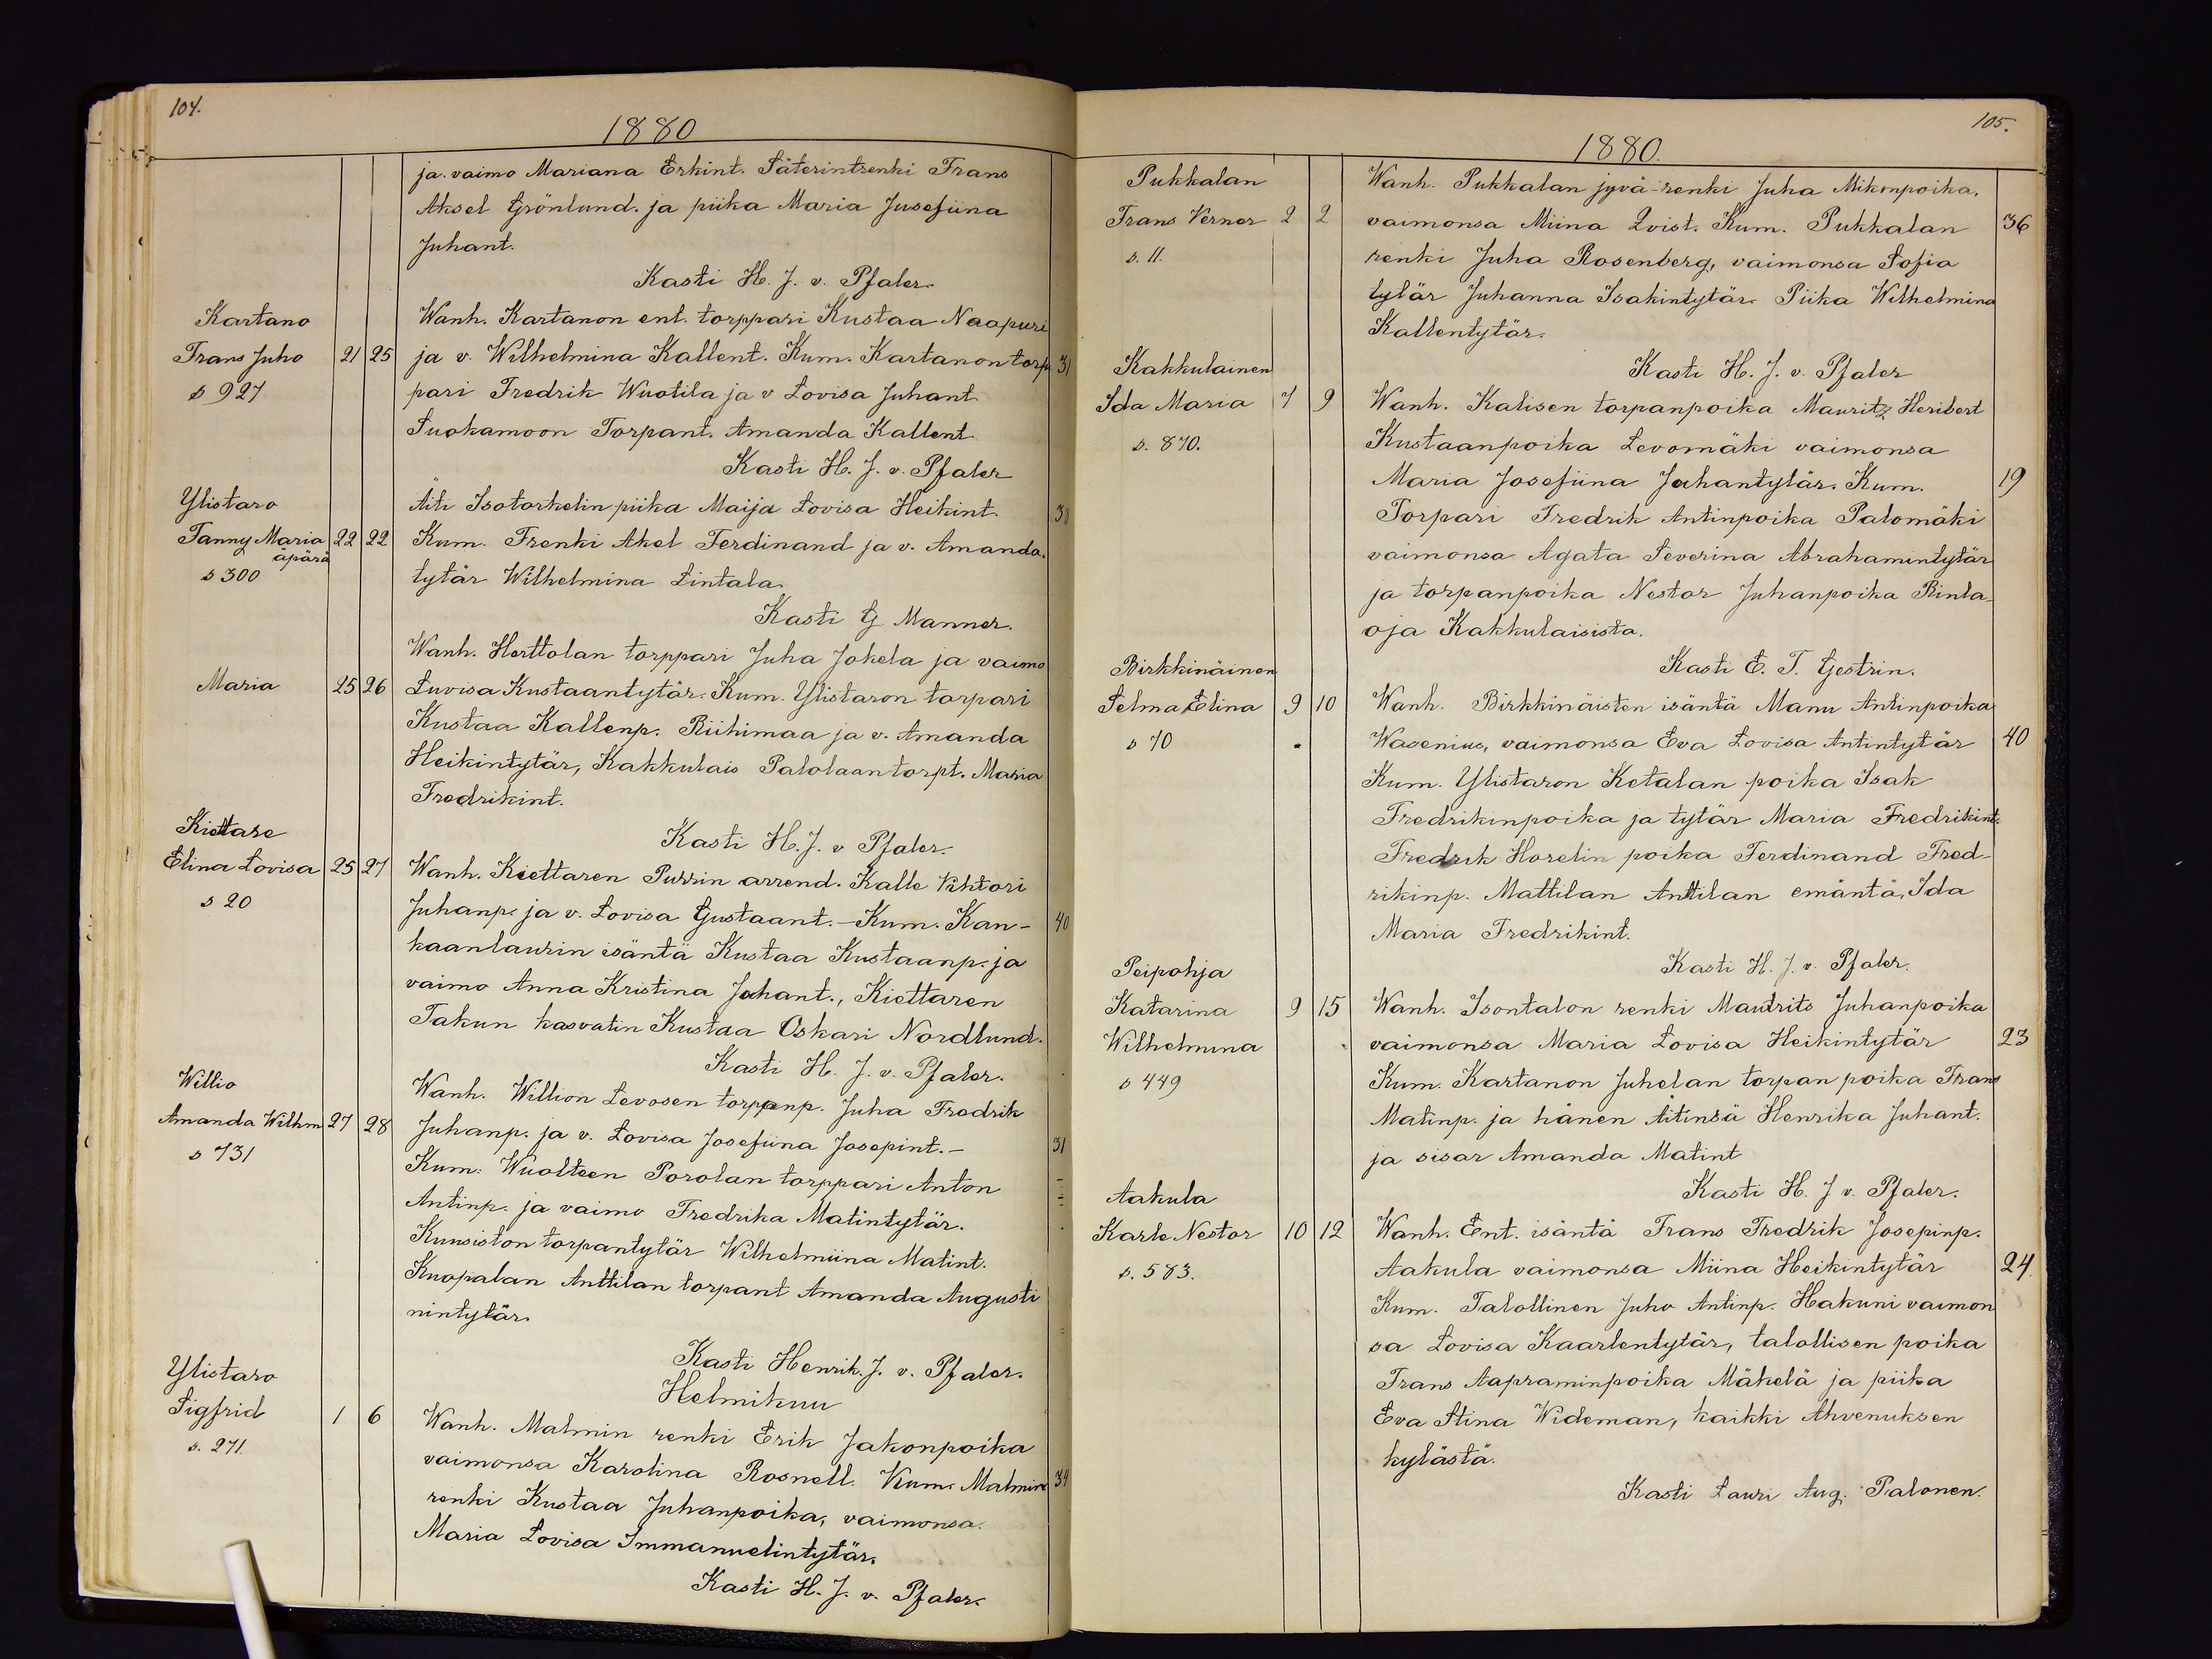 104.
1880
ja vaimo Mariana Erkint. Säterintrenki Frans
Aksel Grönlund. ja piika Maria Jusefiina
Juhant.
Kasti H. J. v. Pfaler.
Kartano
Wanh. Kartanon ent. torppari Kustaa Naapuri
Frans Juho 21 25 ja v. Wilhelmina Kallent. Kum. Kartanon torp 31
s 927 pari Fredrik Wuotila ja v Lovisa Juhant
Suokamoon Torpant. Amanda Kallent.
Kasti H. J. v. Pfaler
Ylistaro Äiti Isotorkelin piika Maija Lovisa Heikint. 38
Fanny Maria 22 22 Kum. Frenki Akel Ferdinand ja v. Amanda.
äpärä
s 300 tytär Wilhelmina Lintala.
Kasti G Manner.
Wanh. Herttolan torppari Juha Jokela ja vaimo
Maria 25 26 Luvisa Kustaantytär. Kum. Ylistaron torpari
Kustaa Kallenp. Riihimaa ja v. Amanda
Heikintytär, Kakkulais Palolaantorpt. Maria
Fredrikint.
Kiettare
Kasti H. J. v Pfaler.
Elina Lovisa 25 27 Wanh. Kiettaren Purrin arrend. Kalle Vihtori
s 20 Juhanp. ja v. Lovisa Gustaant. - Kum. Kan- 40
kaanlaurin isäntä Kustaa Kustaanp. ja
vaimo Anna Kristina Juhant., Kiettaren
Takun kasvatin Kustaa Oskari Nordlund.
Kasti H. J. v. Pfaler.
Willio Wanh. Willion Levosen torppanp. Juha Fredrik
Amanda Wilhm 27 28 Juhanp. ja v. Lovisa Josefiina Josepint. - 31
s 731 Kum. Wuolteen Porolan torppari Anton
Antinp. ja vaimo Fredrika Matintytär.
Kunsiston torpantytär Wilhelmiina Matint.
Kuopalan Anttilan torpant Amanda Augusti
nintytär.
Kasti Henrik. J. v. Pfaler.
Ylistaro
Helmikuu
Sigfrid 1 6 Wanh. Malmin renki Erik Jakonpoika
s. 271. vaimonsa Karolina Rosnell. Kum. Malmin 34
renki Kustaa Juhanpoika, vaimonsa
Maria Lovisa Immanuelintytär.
Kasti H. J. v. Pfaler.
105.
1880.
Pukkalan Wanh. Pukkalan jyvä-renki Juha Mikonpoika.
Frans Verner 2 2 vaimonsa Miina Qvist. Kum. Pukkalan 36
s. 11. renki Juha Rosenberg, vaimonsa Sofia
tytär Juhanna Isakintytär. Piika Wilhelmina
Kallentytär.
Kakkulainen
Kasti H. J. v. Pfaler
Ida Maria 7 9 Wanh. Kalisen torpanpoika Mauritz Heribert
s. 870. Kustaanpoika Levomäki vaimonsa
Maria Josefiina Juhantytär. Kum. 19
Torpari Fredrik Antinpoika Palomäki
vaimonsa Agata Severina Abrahamintytär
ja torpanpoika Nestor Juhanpoika Rinta-
oja Kakkulaisista.
Birkkinäinen
Kasti E. T. Gestrin.
Selma Elina 9 10 Wanh. Birkkinäisten isäntä Manu Antinpoika
s 70 Wasenius, vaimonsa Eva Lovisa Antintytär 40
Kum. Ylistaron Ketalan poika Isak
Fredrikinpoika ja tytär Maria Fredrikint.
Fredrik Horelin poika Ferdinand Fred-
rikinp. Mattilan Anttilan emäntä, Ida
Maria Fredrikint.
Peipohja
Kasti H. J. v. Pfaler.
Katarina 9 15 Wanh. Isontalon renki Mauritz Juhanpoika
Wilhelmina vaimonsa Maria Lovisa Heikintytär 23
s 449 Kum. Kartanon Juhelan torpan poika Frans
Matinp. ja hänen äitinsä Henrika Juhant.
ja sisar Amanda Matint
Aakula
Kasti H. J v. Pfaler.
Karle Nestor 10 12 Wanh. Ent. isäntä Frans Fredrik Josepinp.
s. 583. Aakula vaimonsa Miina Heikintytär 24.
Kum. Talollinen Juho Antinp. Hakuni vaimon
sa Lovisa Kaarlentytär, talollisen poika
Frans Aapraminpoika Mäkelä ja piika
Eva Stina Wideman, kaikki Ahvenuksen
kylästä.
Kasti Lauri Aug. Palonen.